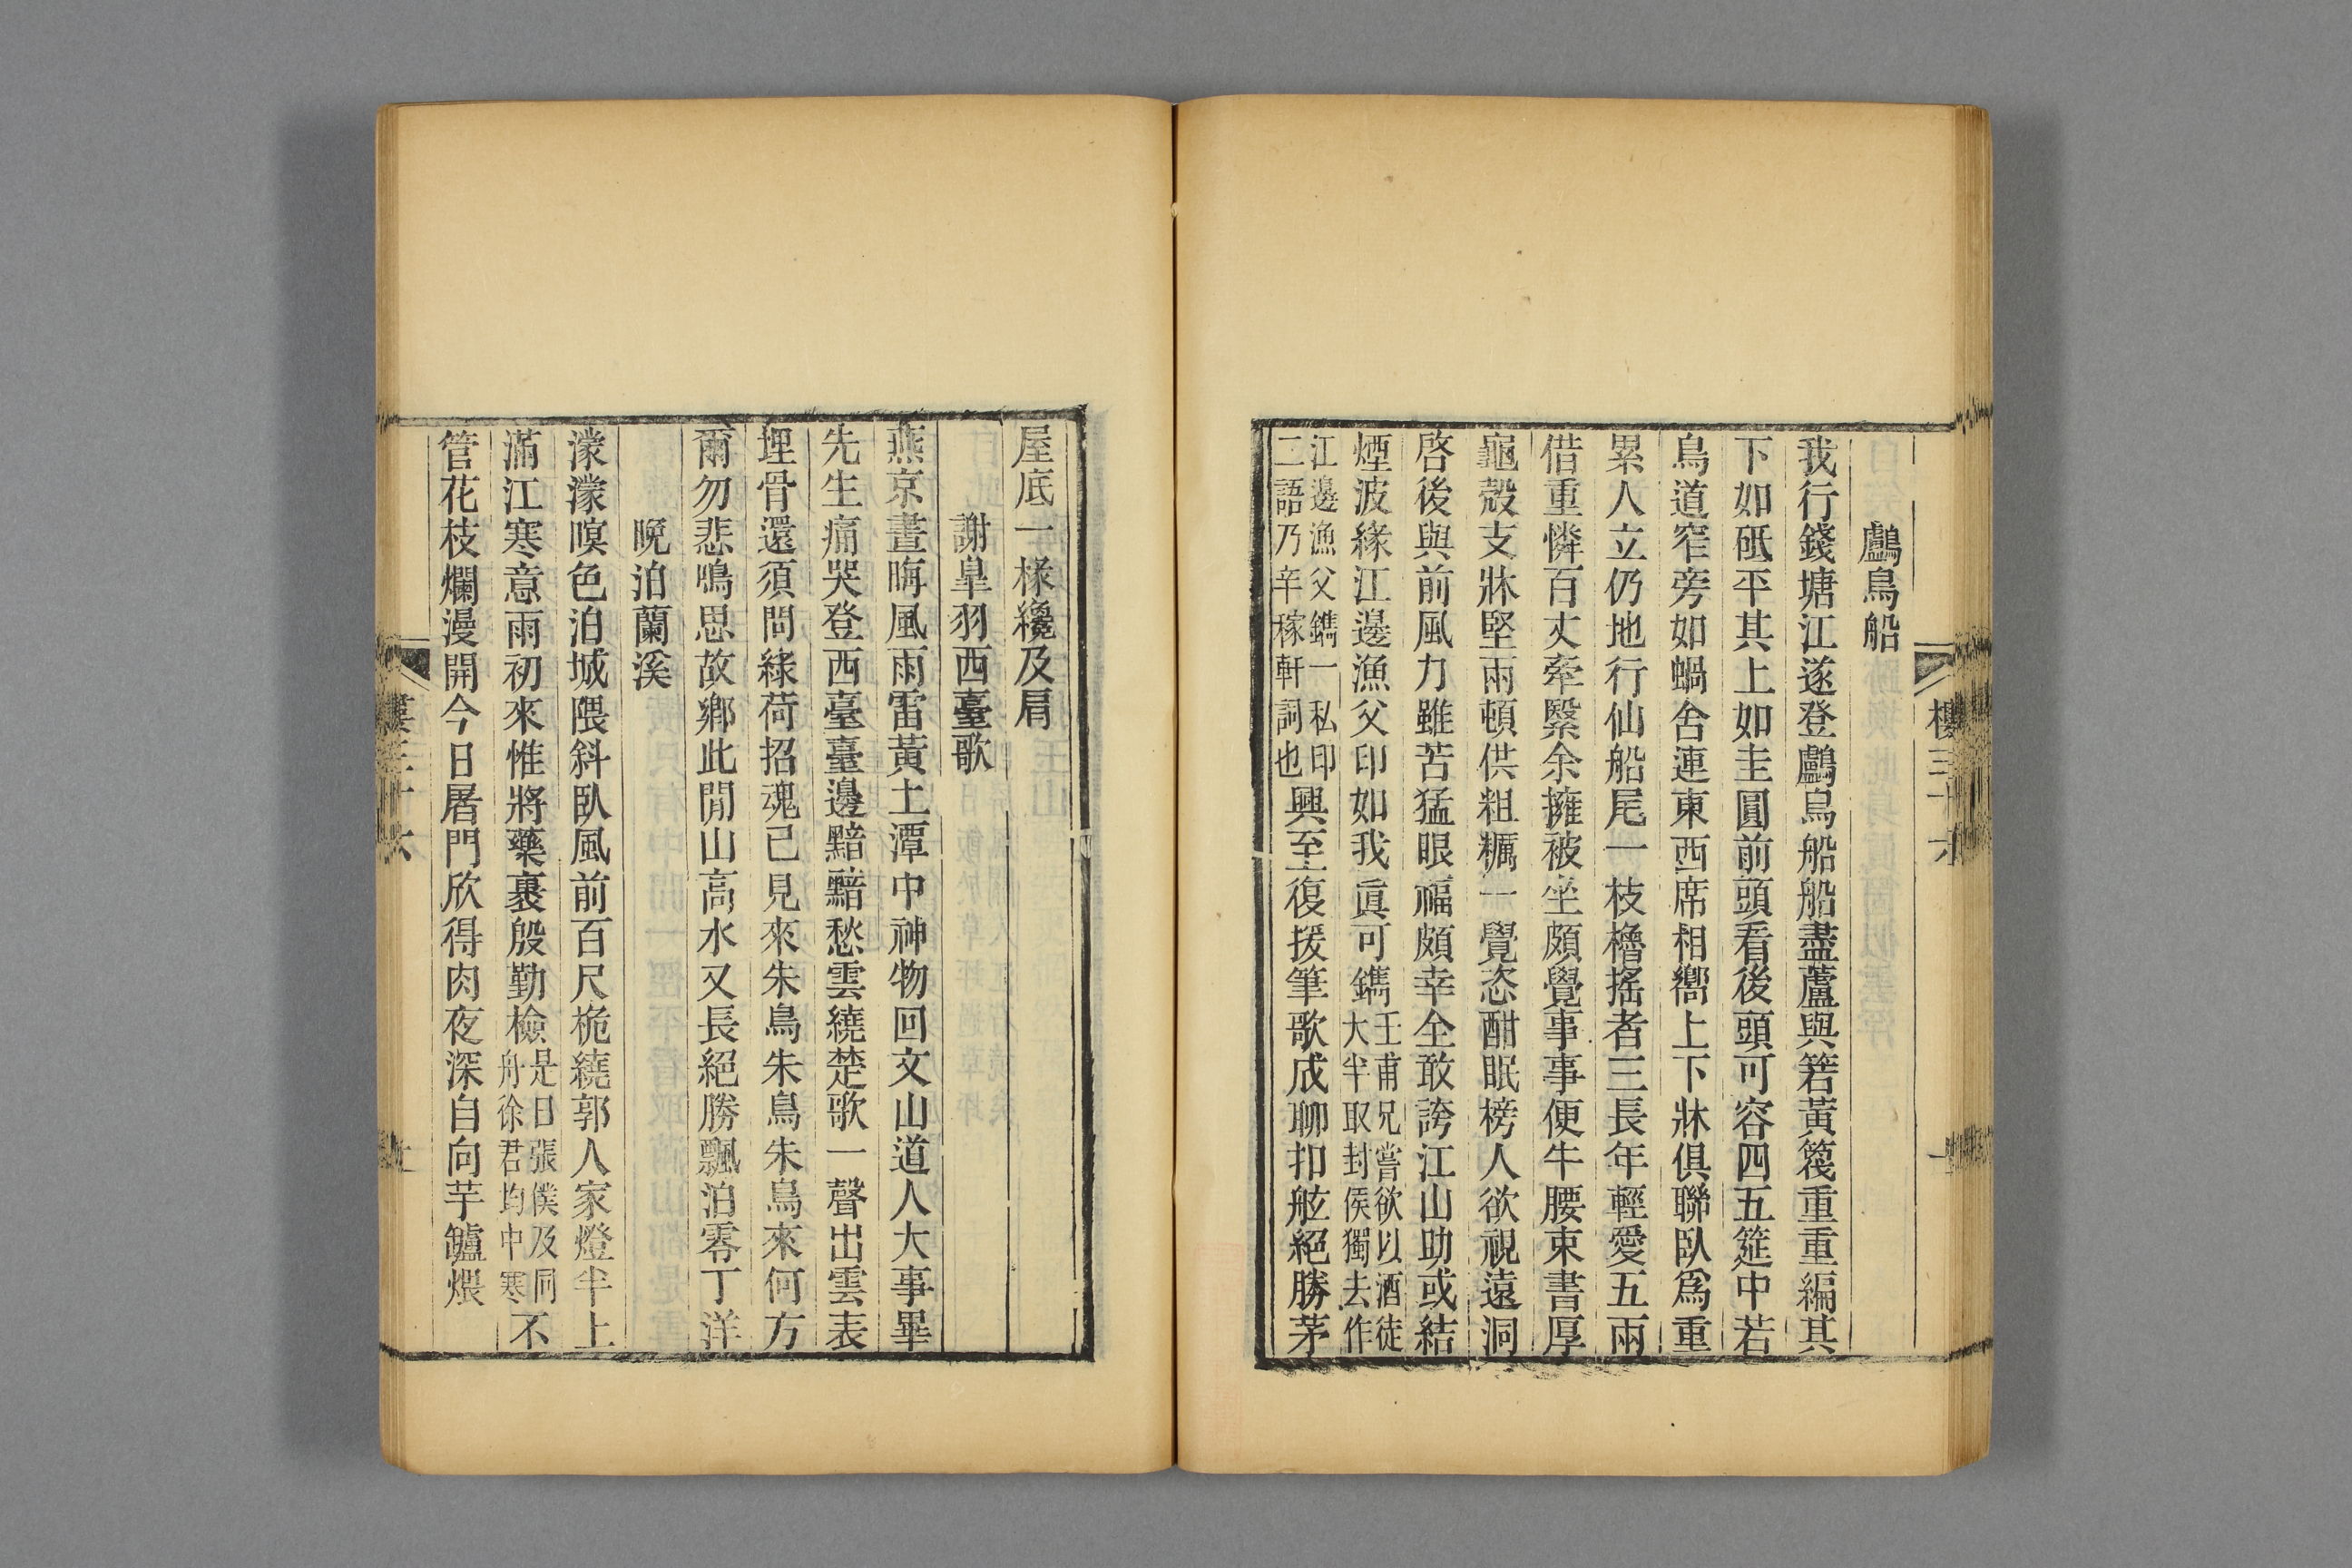 鸕鳥船
我行錢塘江遂登鸕烏船船盡蘆與箬黃篾重重編其
下如砥平其上如圭圓前頭看後頭可容四五筵中若
鳥道窄旁如蝸舍連東西席相嚮上下牀俱聯臥爲重
累人立仍地行仙船尾一枝櫓搖者三長年輕愛五兩
借重憐百丈牽繄余擁被坐頗覺事事便牛腰束書厚
龜殼支牀堅兩頓供粗糲一覺恣酣眠榜人欲視遠洞
啓後與前風力雖苦猛眼福頗幸全敢誇江山助或結
煙波緣江邊漁父印如我眞可鐫壬甫兄嘗欲以酒徒大半取封侯獨去作
江邊漁父鐫一私印二語乃辛稼軒詞也興至復援筆歌成聊扣舷絕勝茅
屋底一椽纔及肩
謝皐羽西臺歌
燕京晝晦風雨雷黃土潭中神物回文山道人大事畢
先生痛哭登西臺臺邊黯黯愁雲繞楚歌一聲出雲表
埋骨還須問綠荷招魂已見來朱鳥朱鳥朱鳥來何方
爾勿悲鳴思故鄉此閒山高水又長絕勝飄泊零丁洋
晚泊蘭溪
濛濛暝色泊城隈斜臥風前百尺桅繞郭人家燈半上
滿江寒意雨初來惟將藥裹殷勤檢是日張僕及同舟徐君均中寒不
管花枝爛漫開今日屠門欣得肉夜深自向芋鑪煨